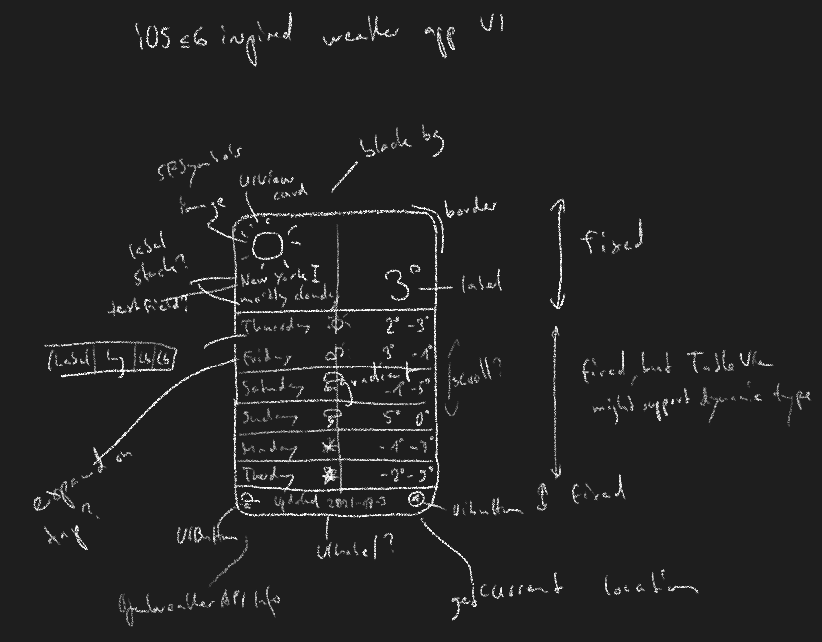 iOS ≤6 inspired weather app UI
black bg
SFSymbols
Image
UIView
card
border
fixed
label
stack?
textfield?
New York
mostly cloudy
3°
label
Thursday 2° -3°
(Label | Img | Lb/Lb)
Friday 3° -1°
gradient
scroll?
Saturday -1° -5°
fixed, but TableView
might support dynamic type
Sunday 5° 0°
Monday -1° -3°
Tuesday -2° -5°
expand on
tap?
Updated
UIButton
fixed
UIButton
UILabel?
OpenweatherAPI Info
get current location